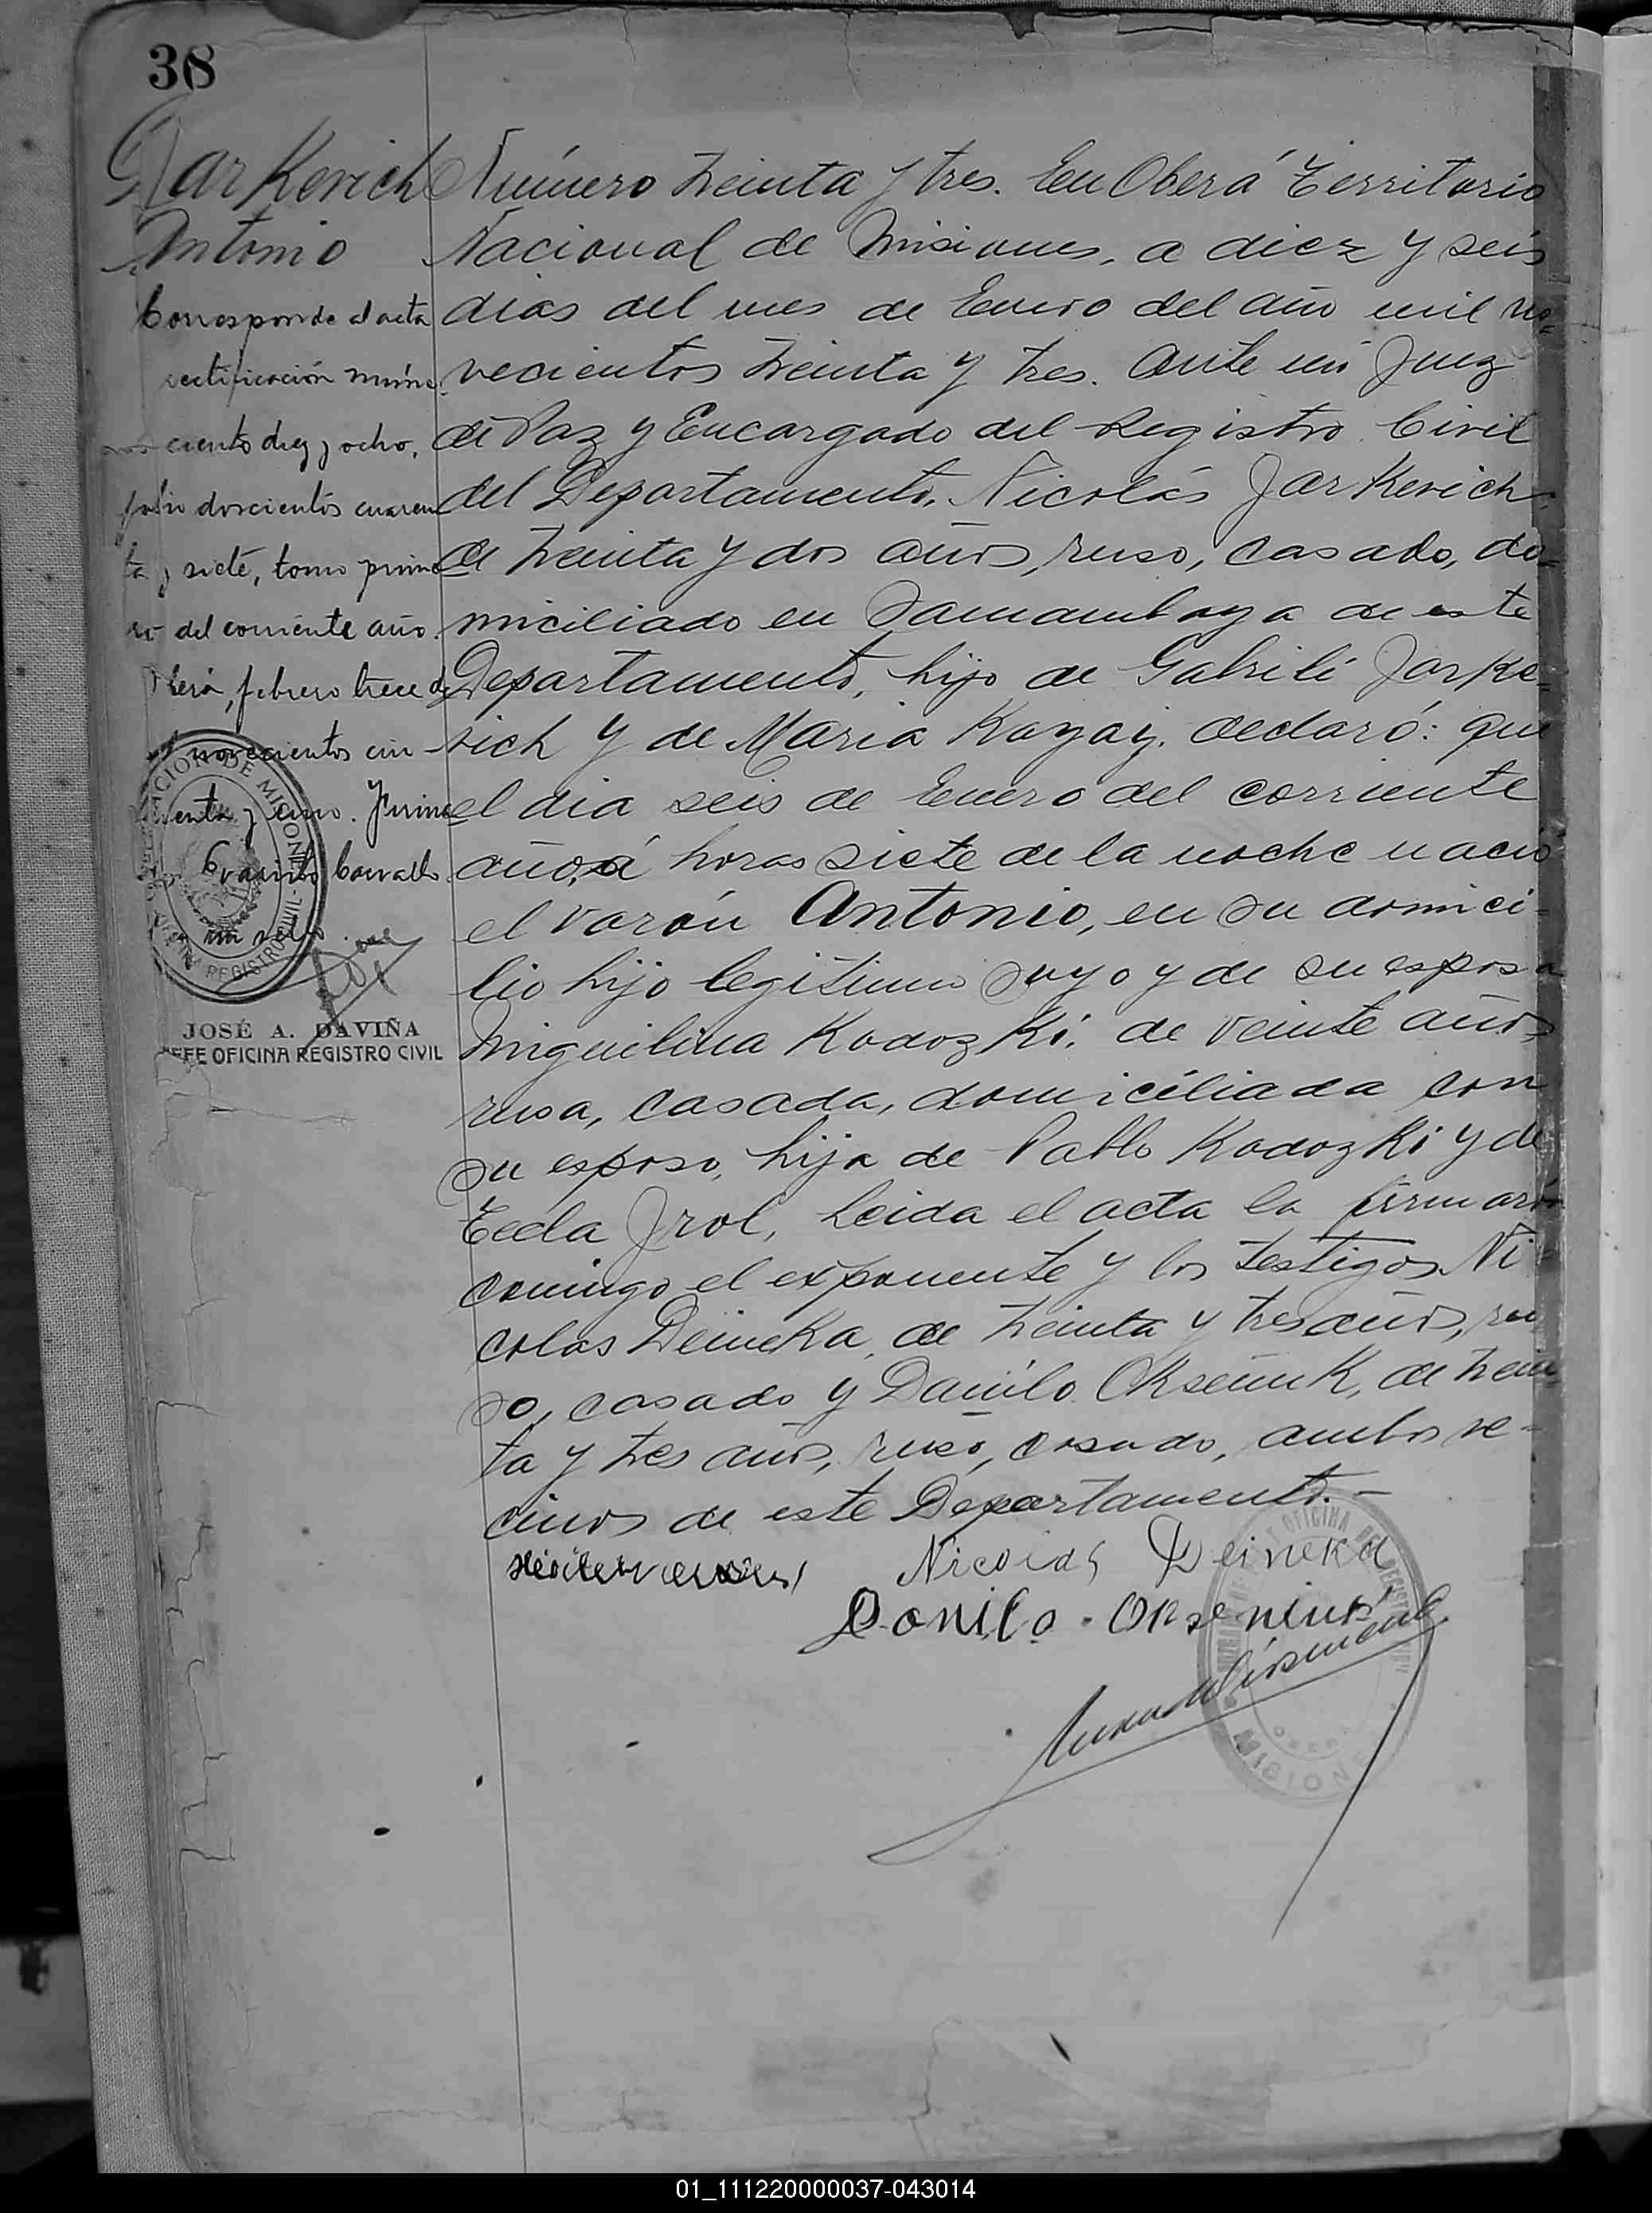 38
Jarkevich
Antonio
Corresponde al acta
rectificación núme
ciento diez y ocho,
folio doscientos cuaren
ta y siete, tomo prime
ro del corriente año.
febrero trece de
novecientos cin
cuenta y uno.
JOSÉ A. DAVIÑA
JEFE OFICINA REGISTRO CIVIL
Número treinta y tres. En Oberá Territorio
Nacional de Misiones, a diez y seis
dias del mes de Enero del año mil no=
vecientos treinta y tres. Ante mi Juez
de Paz y Encargado del Registro Civil
del Departamento, Nicolás Jarkevich
de treinta y dos años, ruso, casado, do=
miciliado en Samambaya de este
Departamento, hijo de Gabrili Jarke=
vich y de Maria Kozay, declaró: que
el dia seis de Enero del corriente
año, á horas siete de la noche nació
el varón Antonio, en su domici=
lio hijo legitimo suyo y de su esposa
Miguilina Kodozki, de veinte años
rusa, casada, domiciliada con
su esposo, hija de Pablo Kodozki y de
Tecla Jrol, Leida el acta la firmarón
comigo el exponente y los testigos Ni
colas Deineka, de treinta y tres años, ru
so, casado y Danilo Okseniuk, de trein
ta y tres años, ruso, casado, ambos ve=
cinos de este Departamento.-
Nicolas Deineka
Donilo. Okseniuk
MISIONES